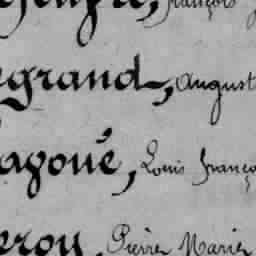 François
egrand, August
agoué, Louis França
erou, Pierre Marie